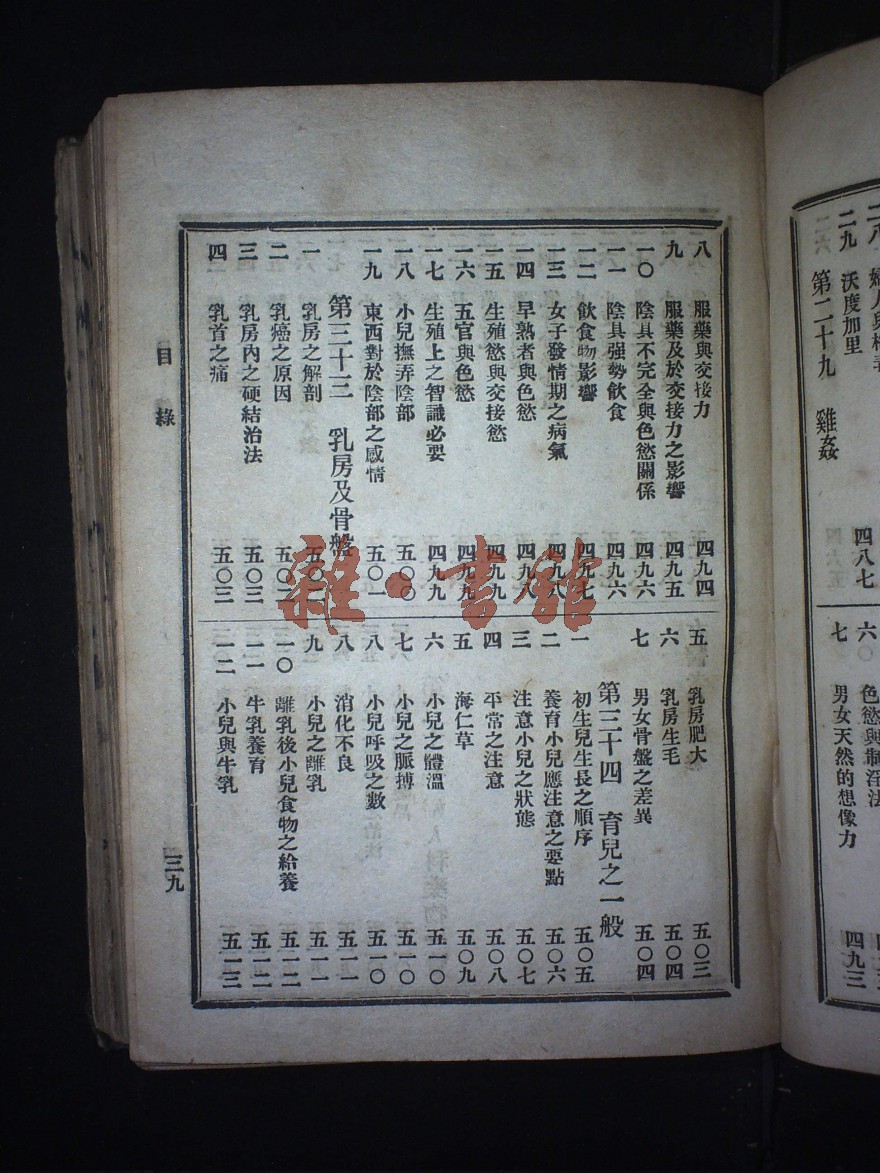 八 服藥與交接力 四九四
九 服藥及於交接力之影響 四九五
一〇 陰具不完全與色慾關係 四九六
一一 陰具强勢飲食 四九六
一二 飲食物影響 四九七
一三 女子發情期之病氣 四九八
一四 早熟者與色慾 四九八
一五 生殖慾與交接慾 四九九
一六 五官與色慾 四九九
一七 生殖上之智識必要 四九九
一八 小兒撫弄陰部 五〇〇
一九 東西對於陰部之感情 五〇一
第三十三 乳房及骨盤
一 乳房之解剖 五〇二
二 乳癌之原因 五〇二
三 乳房內之硬結治法 五〇三
四 乳首之痛 五〇三
五 乳房肥大 五〇三
六 乳房生毛 五〇四
七 男女骨盤之差異 五〇四
第三十四 育兒之一般
一 初生兒生長之順序 五〇五
二 養育小兒應注意之要點 五〇六
三 注意小兒之狀態 五〇七
四 平常之注意 五〇八
五 海仁草 五〇九
六 小兒之體溫 五一〇
七 小兒之脈搏 五一〇
八 小兒呼吸之數 五一〇
八 消化不良 五一一
九 小兒之離乳 五一一
一〇 離乳後小兒食物之給養 五一二
一一 牛乳養育 五一二
一二 小兒與牛乳 五一三
目錄
三九
二八
二九 沃度加里 四八七
第二十九 雞姦
六 色慾與制淫法
七 男女天然的想像力 四九三
雜·書館